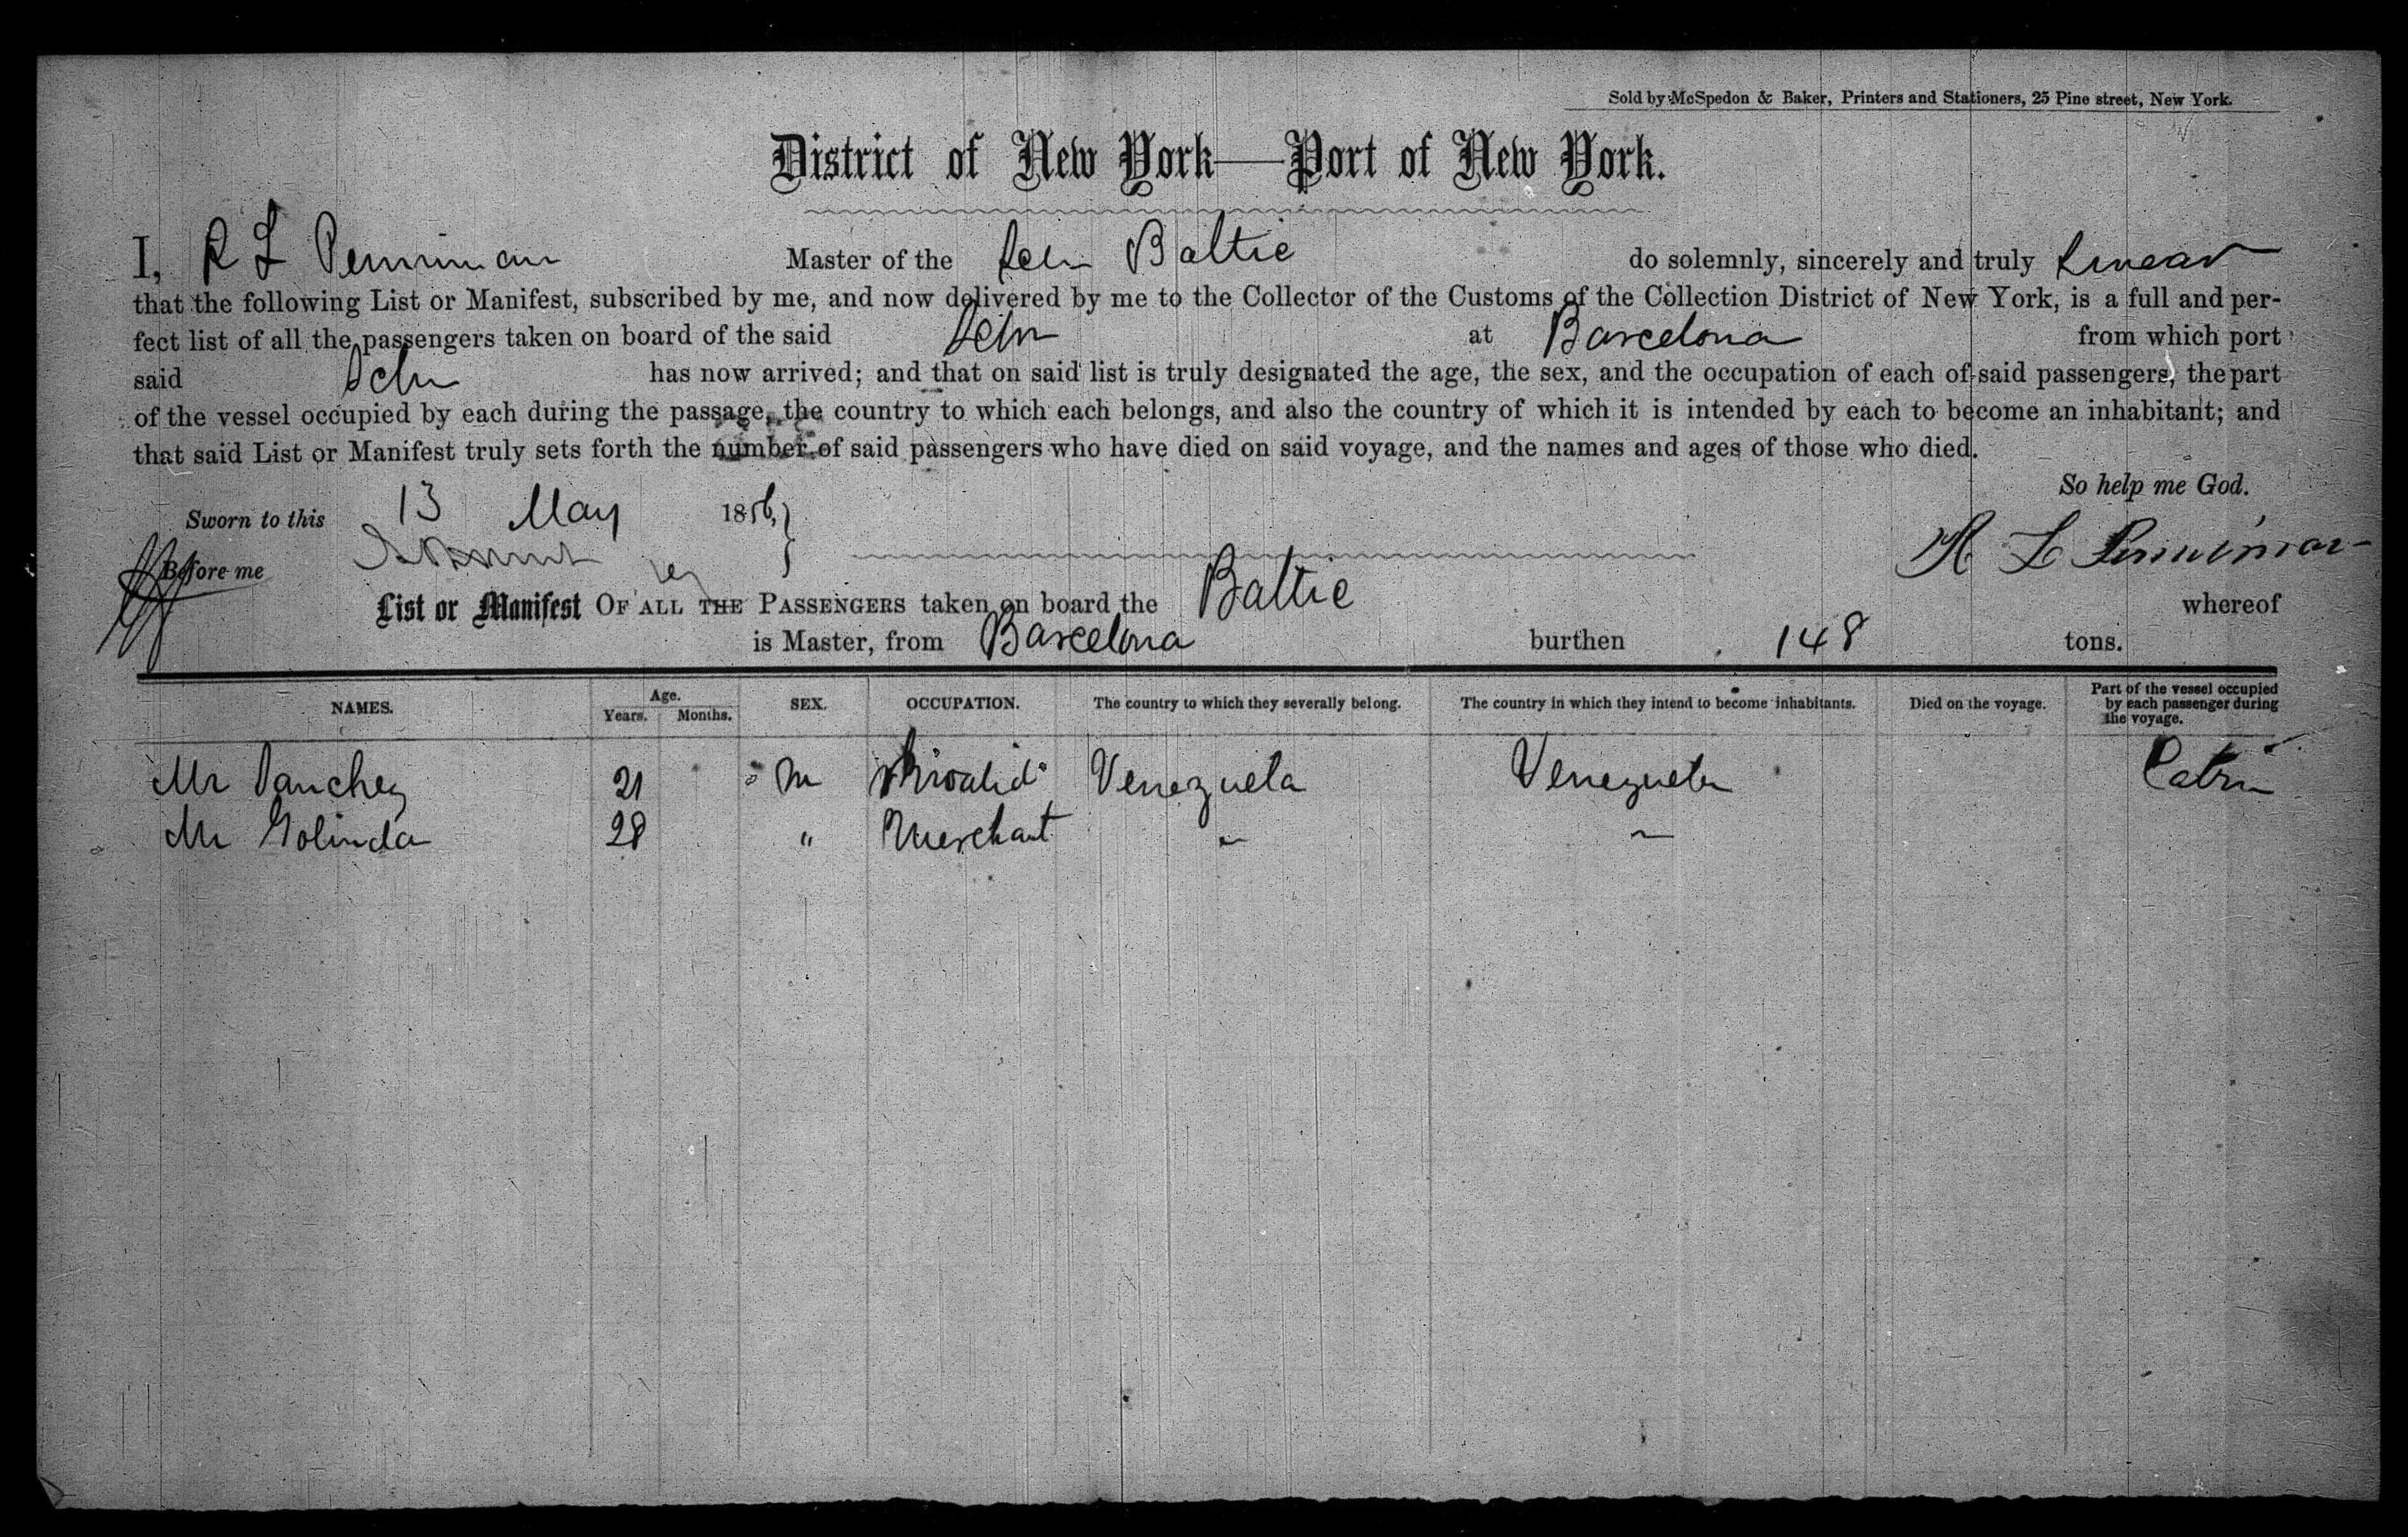 Sold by McSpedon & Baker, Printers and Stationers, 25 Pine street, New York.
District of New York—Port of New York.
I, R L Penniman Master of the Schr Baltic do solemnly, sincerely and truly swear
that the following List or Manifest, subscribed by me, and now delivered by me to the Collector of the Customs of the Collection District of New York, is a full and per-
fect list of all the passengers taken on board of the said Schr at Barcelona from which port
said Schr has now arrived; and that on said list is truly designated the age, the sex, and the occupation of each of said passengers, the part
of the vessel occupied by each during the passage, the country to which each belongs, and also the country of which it is intended by each to become an inhabitant; and
that said List or Manifest truly sets forth the number of said passengers who have died on said voyage, and the names and ages of those who died.
So help me God.
Sworn to this 13 May 1856,
Before me
L Penniman
List or Manifest OF ALL THE PASSENGERS taken on board the Baltic whereof
is Master, from Barcelona burthen 148 tons.
NAMES. Age. Years. Months. SEX. OCCUPATION. The country to which they severally belong. The country in which they intend to become inhabitants. Died on the voyage. Part of the vessel occupied by each passenger during the voyage.
Mr Sanchez 21 M Invalid Venezuela Venezuela Cabin
Mr Golinda 28 " Merchant